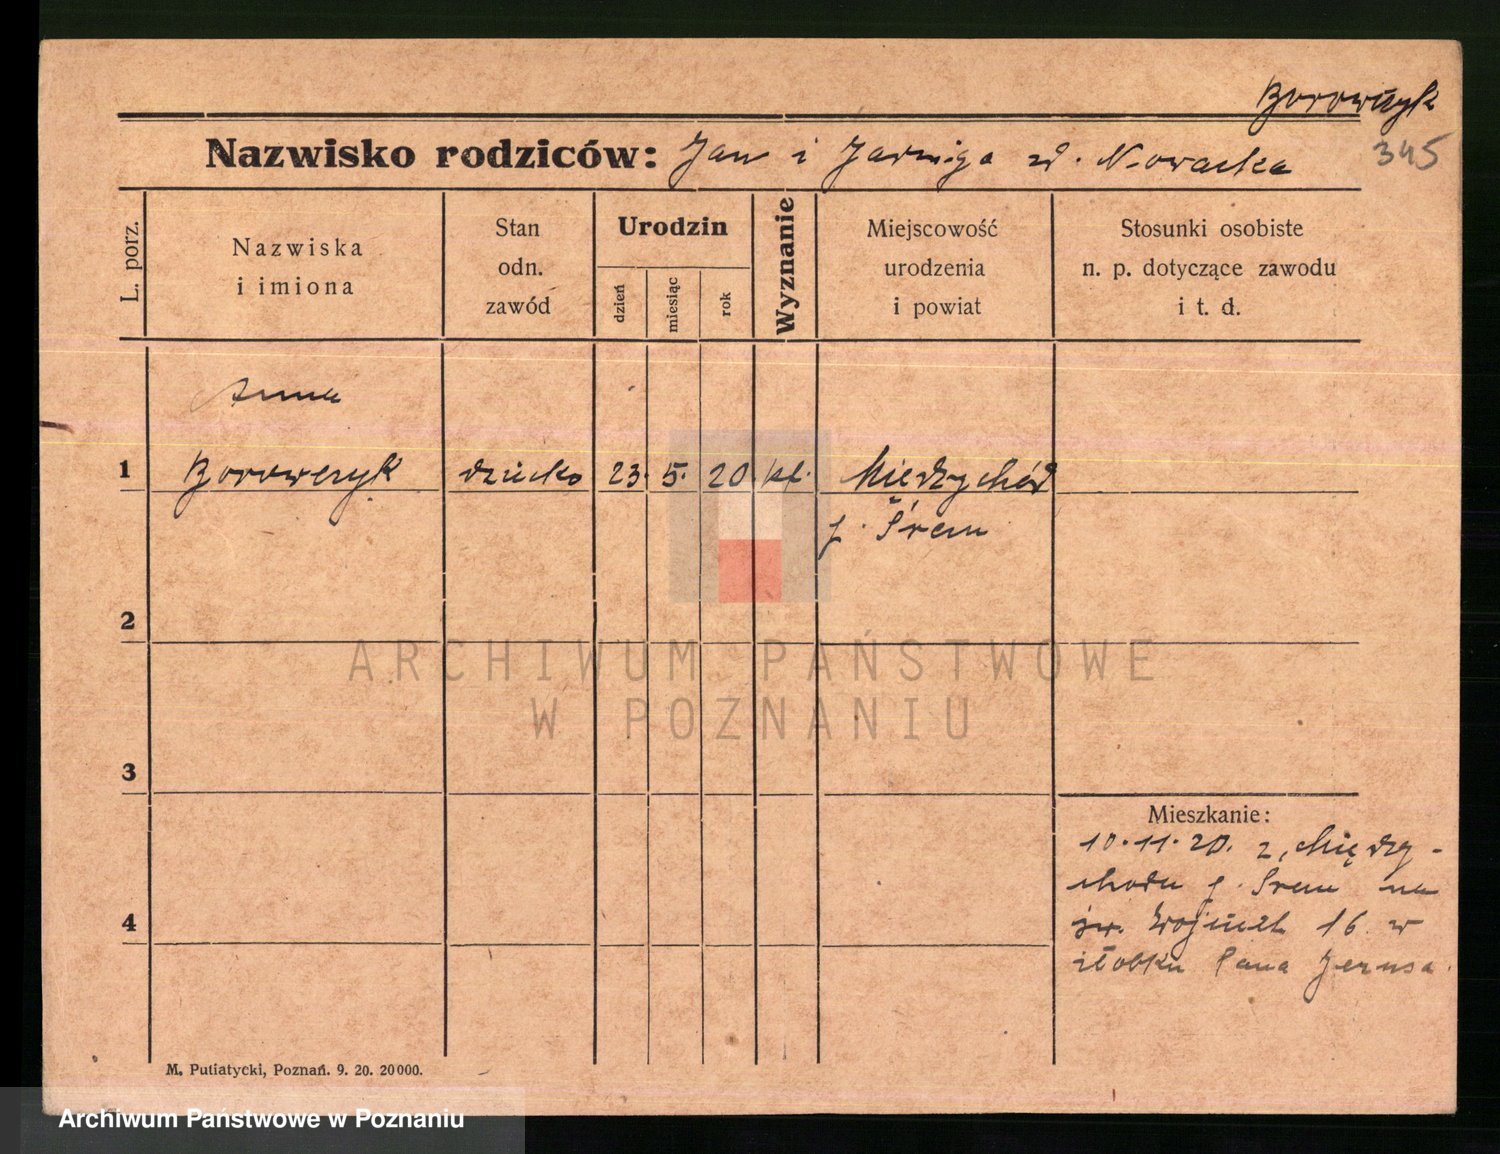 Borowczyk
Nazwisko rodziców: Jan i Jadwiga zd. Nowacka 345
L. porz.
Nazwiska
i imiona
Stan
odn.
zawód
Urodzin
dzień
miesiąc
rok
Wyznanie
Miejscowość
urodzenia
i powiat
Stosunki osobiste
n. p. dotyczące zawodu
i t. d.
Anna
1 Borowczyk dziecko 23. 5. 20 kt. Miedzychód
p. Śrem
2
ARCHIWUM PAŃSTWOWE
W POZNANIU
3
Mieszkanie:
10.11.20. z Między-
chodu p. Śrem na
św. Wojciech 16 w
żłobku Pana Jezusa.
4
M. Putiatycki, Poznań. 9. 20. 20000.
Archiwum Państwowe w Poznaniu